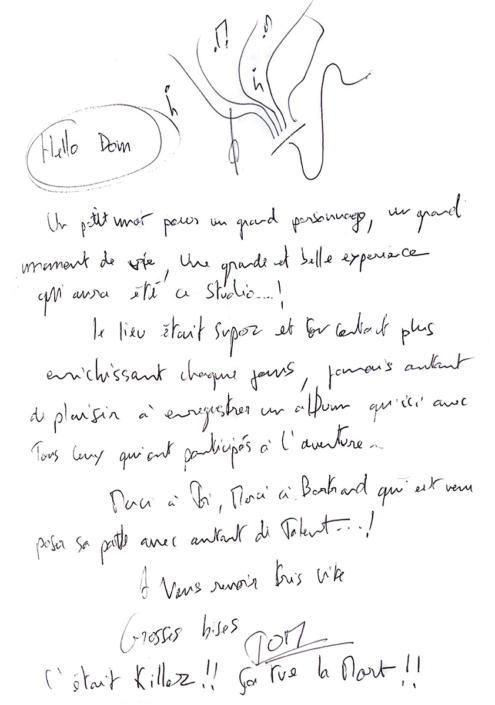 Hello Dom
Un petit mot pour un grand personnage, un grand
moment de vie, une grande et belle experience
qu'aura été ce Studio....!
le lieu était Super et ton contact plus
enrichissant chaque jours, jamais autant
de plaisir à enregistrer un album qu'ici avec
Tous ceux qui ont participés à l'aventure..
Merci à Toi, Merci à Bertrand qui est venu
poser sa patte avec autant de Talent....!
A Vous revoir très vite
Grosses bises
TOM
C'était Killer!! ça tue la Mort!!